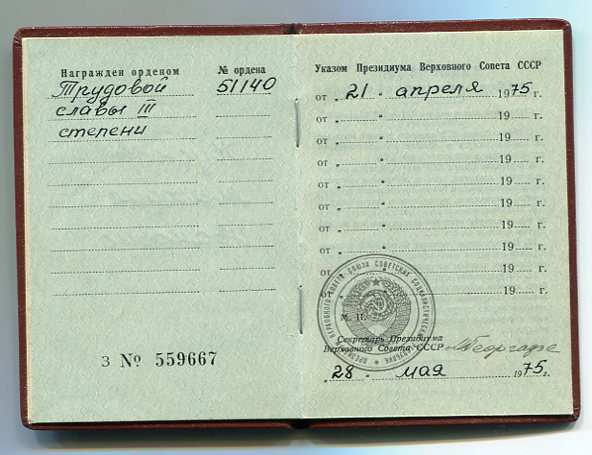 Награжден орденом № ордена
Трудовой 51140
славы III
степени
З № 559667
Указом Президиума Верховного Совета СССР
от „ 21 “ апреля 1975 г.
от „ “ 19 г.
от „ “ 19 г.
от „ “ 19 г.
от „ “ 19 г.
от „ “ 19 г.
от „ “ 19 г.
от „ “ 19 г.
от „ “ 19 г.
от „ “ 19 г.
М. П.
Секретарь Президиума
Верховного Совета СССР Георгадзе
„ 28 “ мая 1975 г.